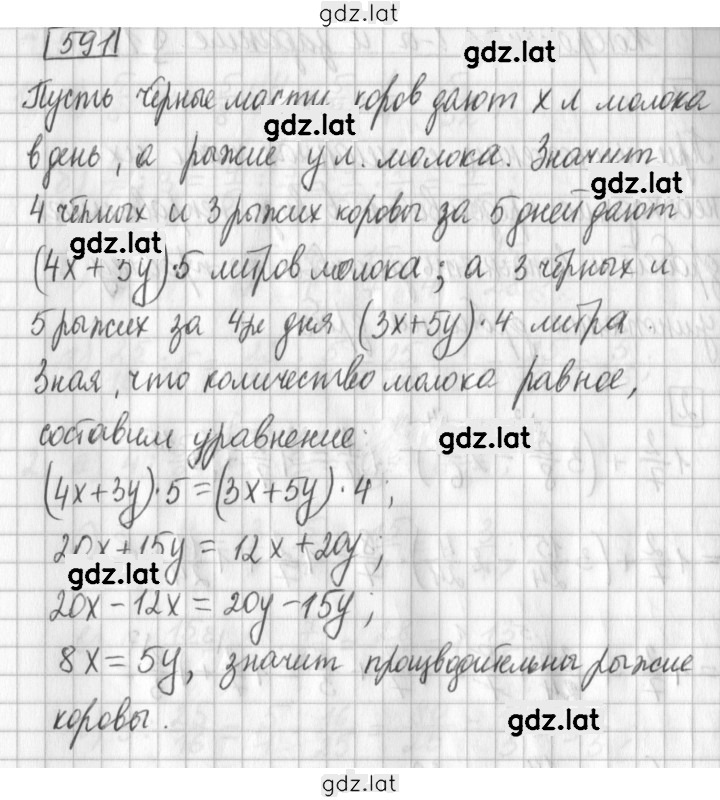 gdz.lat
591
gdz.lat
Пусть чёрные масти коров дают x л молока
gdz.lat
в день, а рыжие y л. молока. Значит
gdz.lat
4 чёрных и 3 рыжих коровы за 5 дней дают
gdz.lat
(4x + 3y)·5 литров молока; а 3 чёрных и
5 рыжих за 4 дня (3x+5y)·4 литра.
Зная, что количество молока равное,
составим уравнение:
gdz.lat
(4x+3y)·5=(3x+5y)·4;
20x+15y = 12x+20y;
gdz.lat
20x-12x=20y-15y;
8x=5y, значит производительны рыжие
коровы.
gdz.lat
gdz.lat